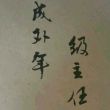 级主任
成外年